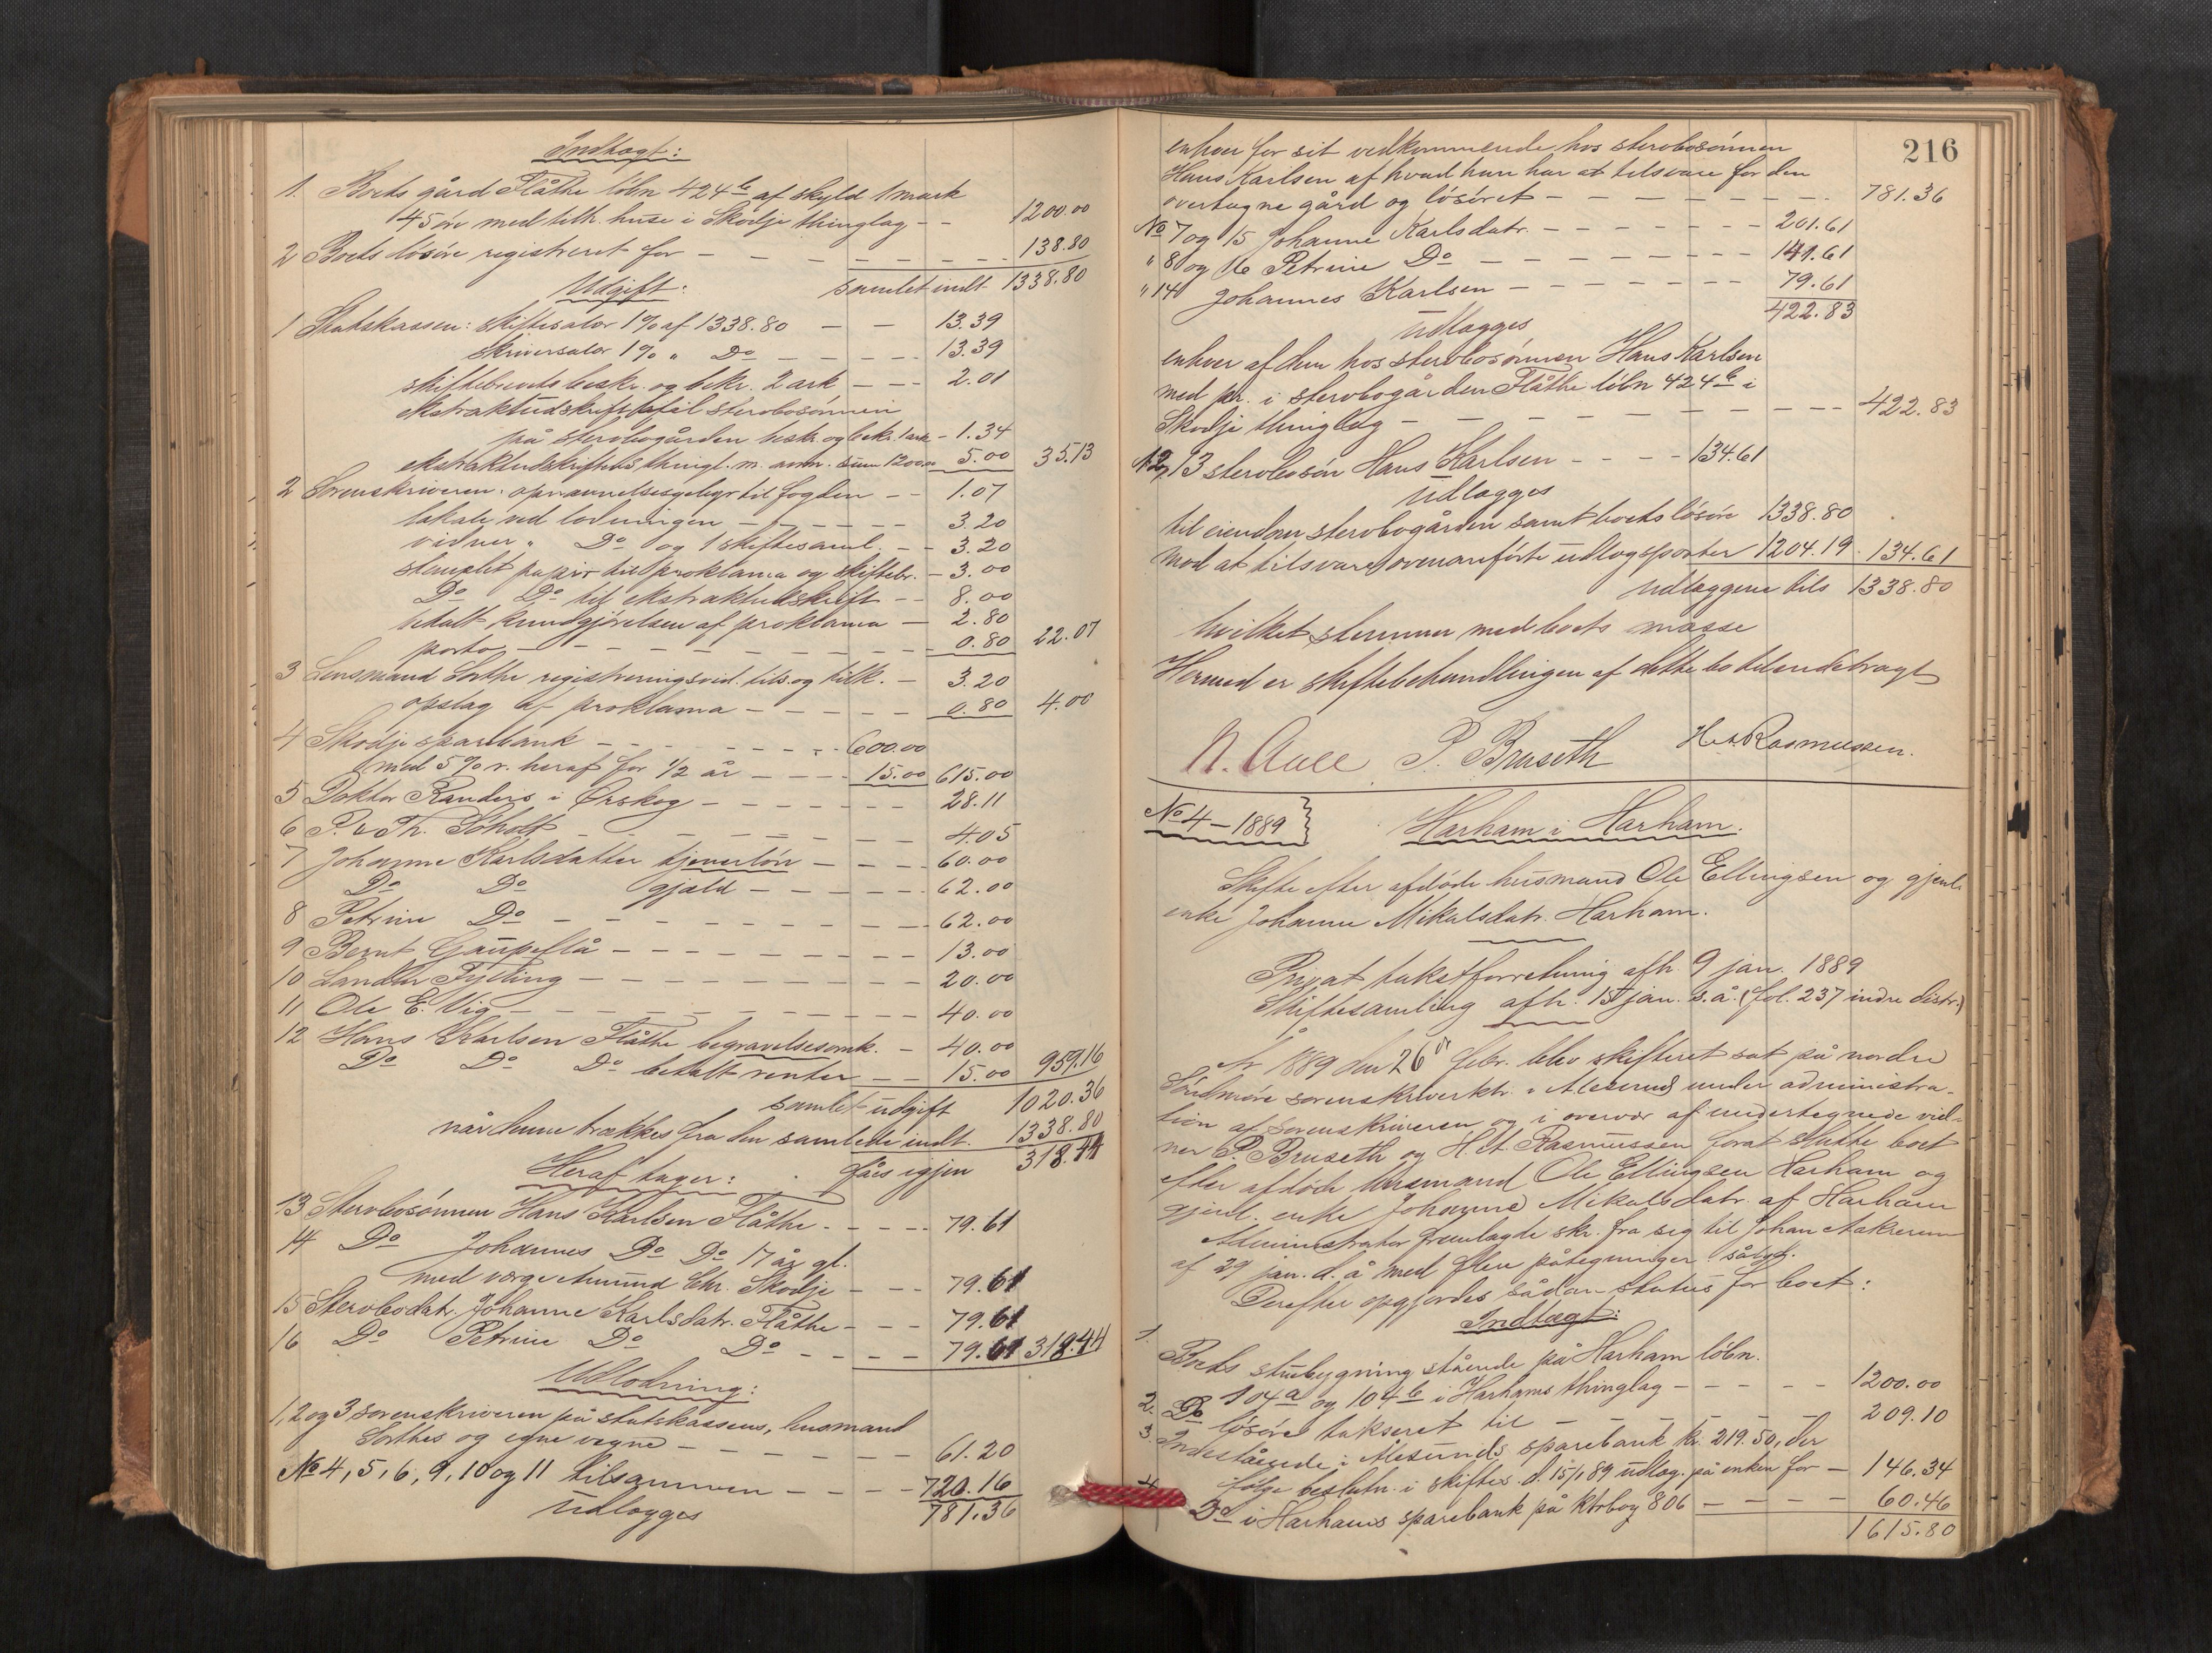 Indtægt:
1. Boets gård Flåthe löbn 424b af skyld 1 mark
45 öre med tilh. huse i Skodje thinglag - - 1200.00
2 Boets lösöre registreret for - - - - - - 138.80
samlet indt. 1338.80
Udgift:
1 Statskassen: skiftesalær 1% af 1338.80 - - 13.39
skriversalær 1% " Do - - - - - 13.39
skiftebrevets beskr. og bekr. 2 ark - - - 2.01
ekstraktudskrift til stervbosönnen
på stervbogården beskr. og bekr. 1 ark - 1.34
ekstraktudskriftets thingl. m. anm. sum 1200.00 5.00 35.13
2 Sorenskriveren: opnævnelsesgebyr til fogden - - 1.07
lokale ved lodningen - - - - - - 3.20
vidner " Do og 1 skiftesaml. - - 3.20
stemplet papir til proklama og skiftebr. - 3.00
Do Do til ekstraktudskrift - - 8.00
betalt kundgjörelsen af proklama - 2.80
porto - - - - - - - - - 0.80 22.07
3 Lensmand Sorthe registreringsvid. tils. og tilk. - 3.20
opslag af proklama - - - - - 0.80 4.00
4 Skodje sparebank - - - - - - - 600.00
med 5% r. heraf for 1/2 år - - - - 15.00 615.00
5 Doktor Randers i Örskog - - - - - - - 28.11
6 P. & Th. Söholt - - - - - - - 4.05
7 Johanne Karlsdatter tjenerlön - - - - 60.00
Do Do gjæld - - - - - - 62.00
8 Petrine Do - - - - - - - - - 62.00
9 Bernt Gaupeflå - - - - - - - - - 13.00
10 Landhdr Tysting - - - - - - - - - 20.00
11 Ole E. Vig - - - - - - - - - - 40.00
12 Hans Karlsen Flåthe begravelsesomk. - 40.00
Do Do Do betalt renter - - 15.00 959.16
samlet udgift 1020.36
når denne trækkes fra den samlede indt. 1338.80
fåes igjen 318.44
Heraf tager:
13 Stervbosönnen Hans Karlsen Flåthe - - - - - 79.61
14 Do Johannes Do Do 17 år gl.
med værge Amund Chr. Skodje - - - 79.61
15 Stervbodatr. Johanne Karlsdatr. Flåthe - - - 79.61
16 Do Petrine Do Do - - - - 79.61 318.44
Udlodning:
1, 2 og 3 sorenskriveren på statskassens, lensmand
Sorthes og egne vegne - - - - - - - 61.20
No 4, 5, 6, 9, 10 og 11 tilsammen - - - - 720.16
781.36
udlægges
216
enhver for sit vedkommende hos stervbosönnen
Hans Karlsen af hvad han har at tilsvare for den
overtagne gård og lösöret - - - - - - - - 781.36
No 7 og 15 Johanne Karlsdatr. - - - - - - - 201.61
" 8 og 16 Petrine Do - - - - - - - - - 141.61
" 14 Johannes Karlsen - - - - - - - 79.61
422.83
udlægges
enhver af dem hos stervbosönnen Hans Karlsen
med pr. i stervbogården Flåthe löbn 424b i
Skodje thinglag - - - - - - - - - - - 422.83
12, 13 stervbosön Hans Karlsen - - - - 134.61
udlægges
til eiendom stervbogården samt boets lösöre 1338.80
mod at tilsvare ovenanförte udlægsposter 1204.19 134.61
udlæggene tils 1338.80
hvilket stemmer med boets masse
Hermed er skiftebehandlingen af dette bo tilendebragt
N. Aall P. Bruseth H. A. Rasmussen.
No 4 - 1889 Harham i Harham.
Skifte efter afdöde husmand Ole Ellingsen og gjenl.
enke Johanne Mikalsdatr. Harham.
Privat takstforretning afh. 9 jan. 1889
Skiftesamling afh. 15 jan. s.å. (fol. 237 indre distr.)
År 1889 den 26de febr. blev skifteret sat på nordre
Söndmöre sorenskriverktr. i Ålesund under administra-
tion af sorenskriveren og i overvær af undertegnede vid-
ner P. Bruseth og H. A. Rasmussen forat slutte boet
efter afdöde husmand Ole Ellingsen Harham og
gjenl. enke Johanne Mikalsdatr. af Harham
Administrator fremlagde skr. fra sig til Johan Aakreman
af 29 jan. d. å med flere påtegninger sålyd.
Derefter opgjordes sådan status for boet:
Indtægt:
1. Boets stuebygning stående på Harham löbn.
104a og 104b i Harhams thinglag - - - - - 1200.00
2. Do lösöre takseret til - - - - - - - 209.10
3. Indestående i Ålesunds sparebank kr. 219.50, der
ifölge beslutn. i skiftes. d. 15/1 89 udlæg. på enken for - 146.34
4 Do i Harhams sparebank på ktrbog 806 - - - - 60.46
1615.80